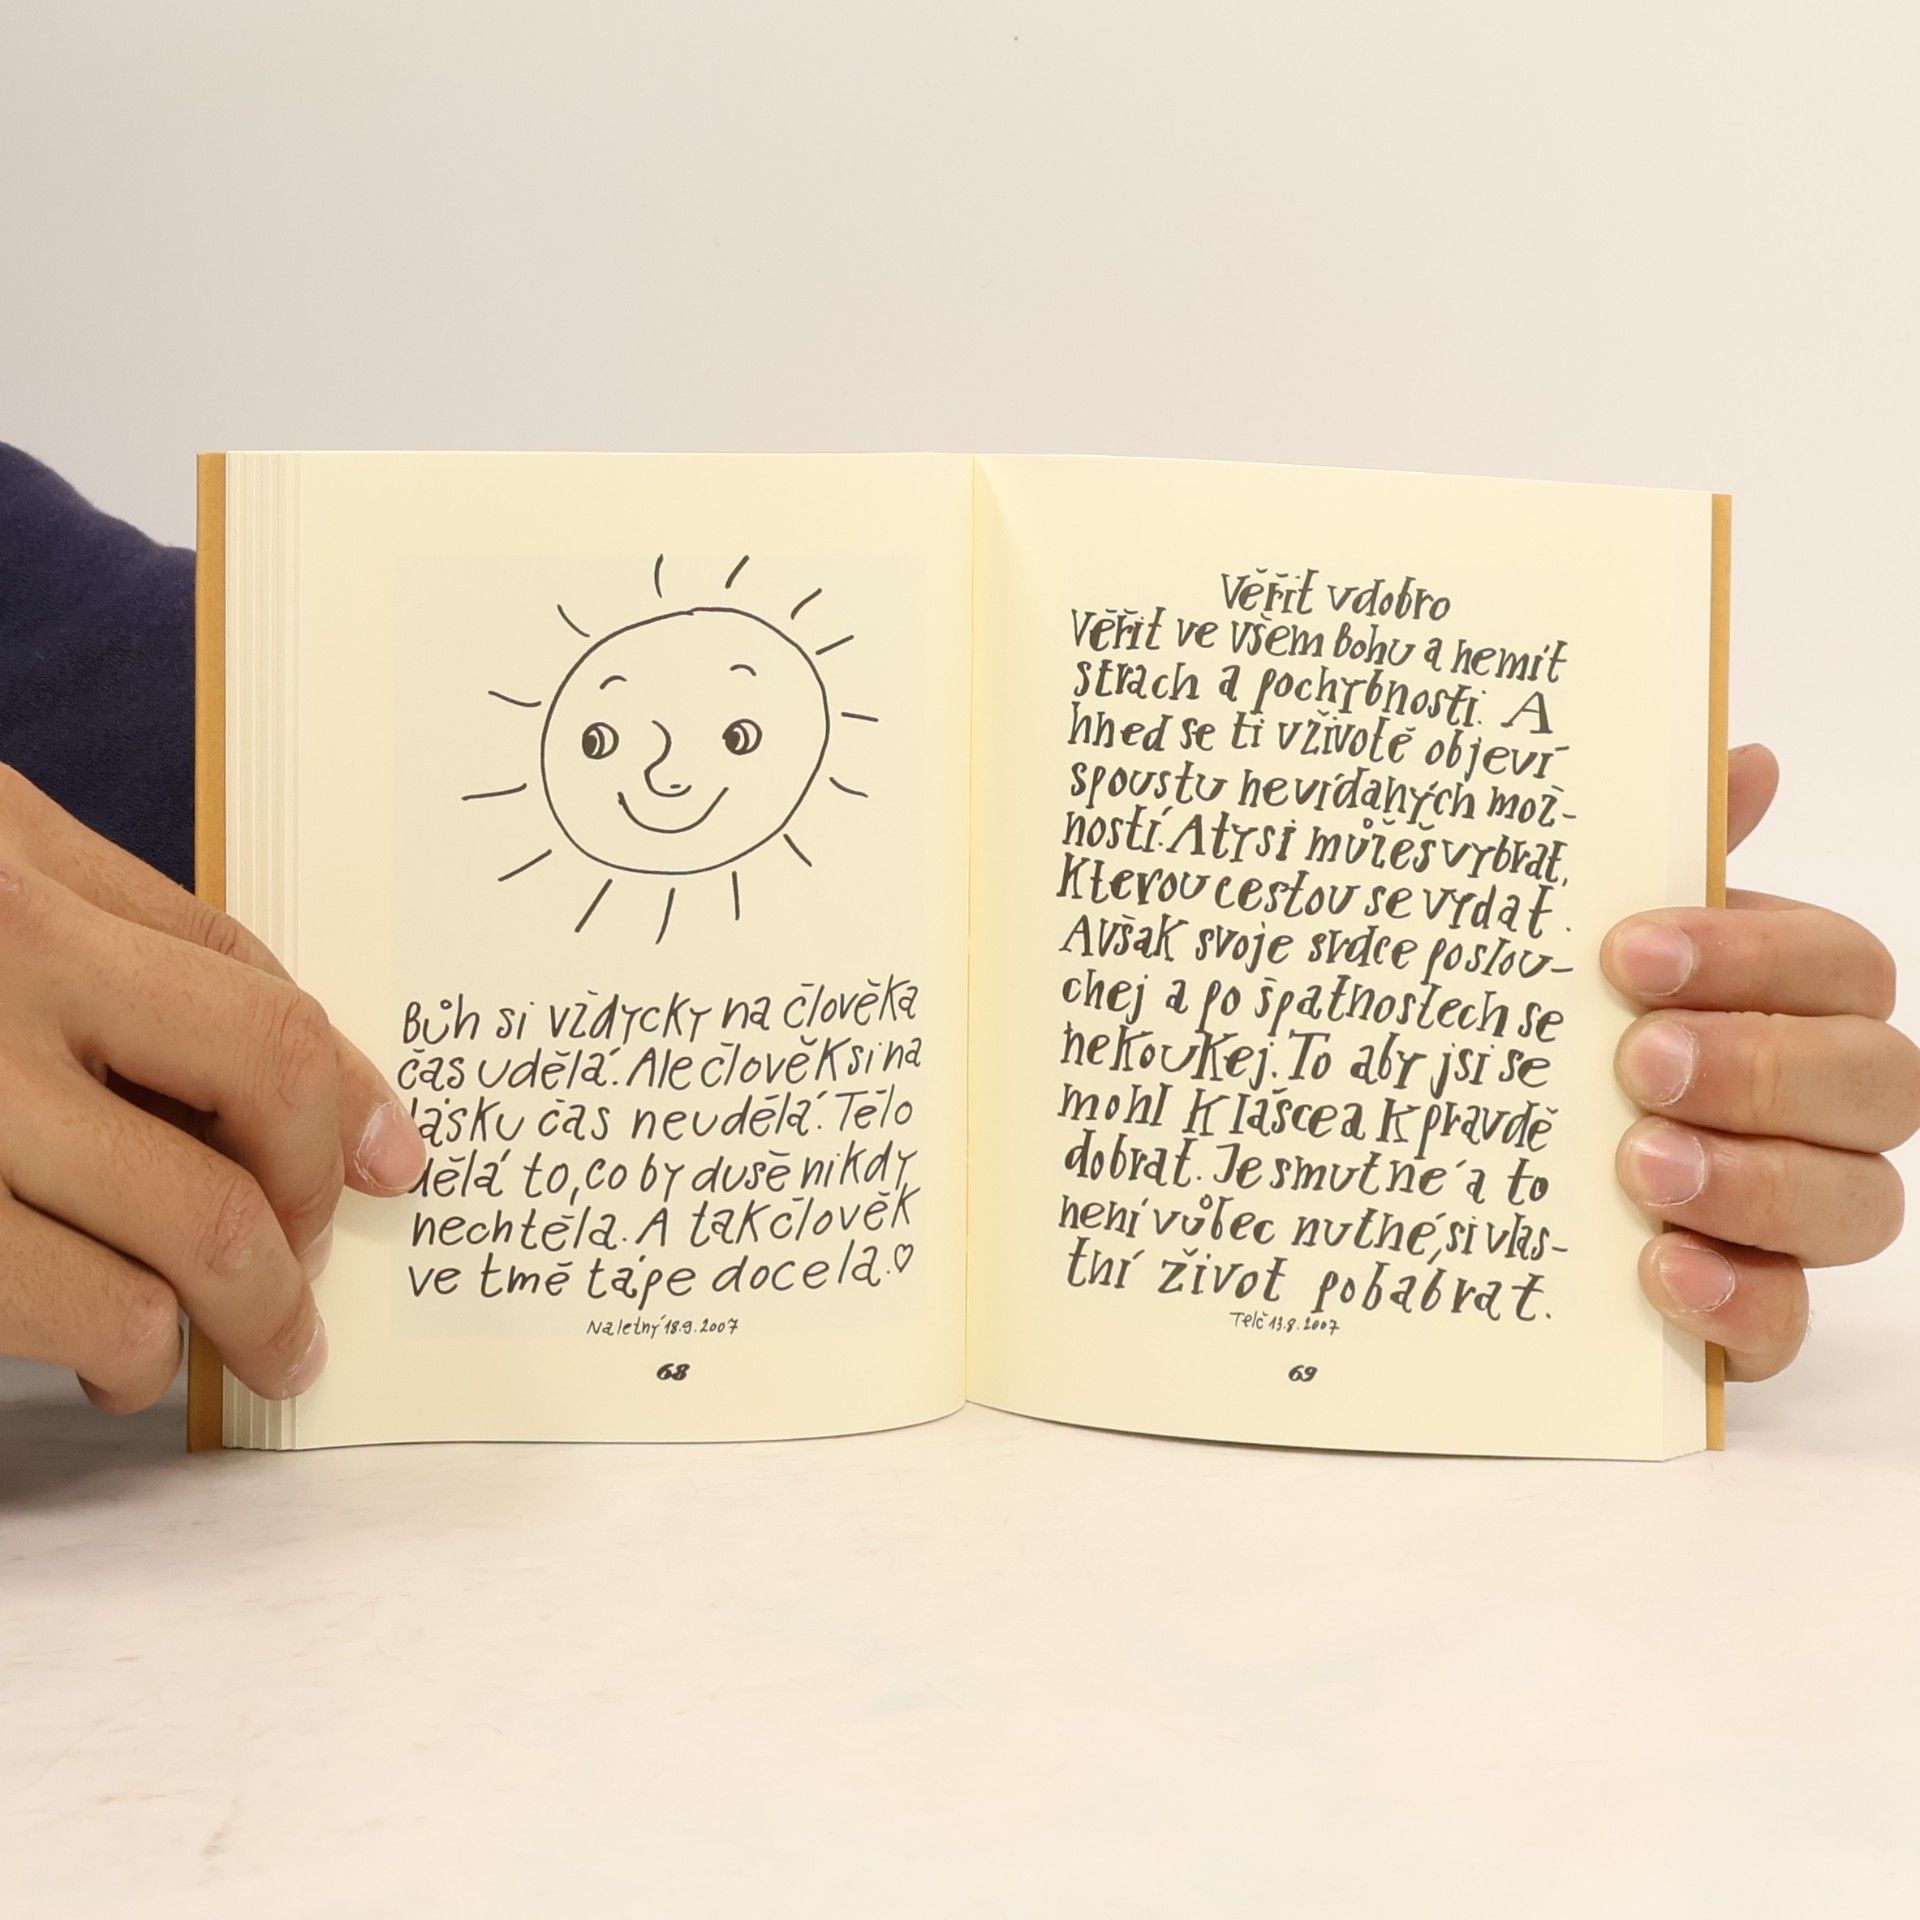 Bůh si vždycky na člověka
čas udělá. Ale člověk si na
lásku čas neudělá. Tělo
dělá to, co by duše nikdy
nechtěla. A tak člověk
ve tmě tápe docela.♡
Naletný 18.9.2007
68
Věřit v dobro
Věřit ve všem Bohu a nemít
strach a pochybnosti. A
hned se ti v životě objeví
spoustu nevídaných mož-
ností. A ty si můžeš vybrat,
kterou cestou se vydat.
Avšak svoje srdce poslou-
chej a po špatnostech se
nekoukej. To aby jsi se
mohl k lásce a k pravdě
dobrat. Je smutné a to
není vůbec nutné, si vlas-
tní život pobabrat.
Telč 13.8.2007
69